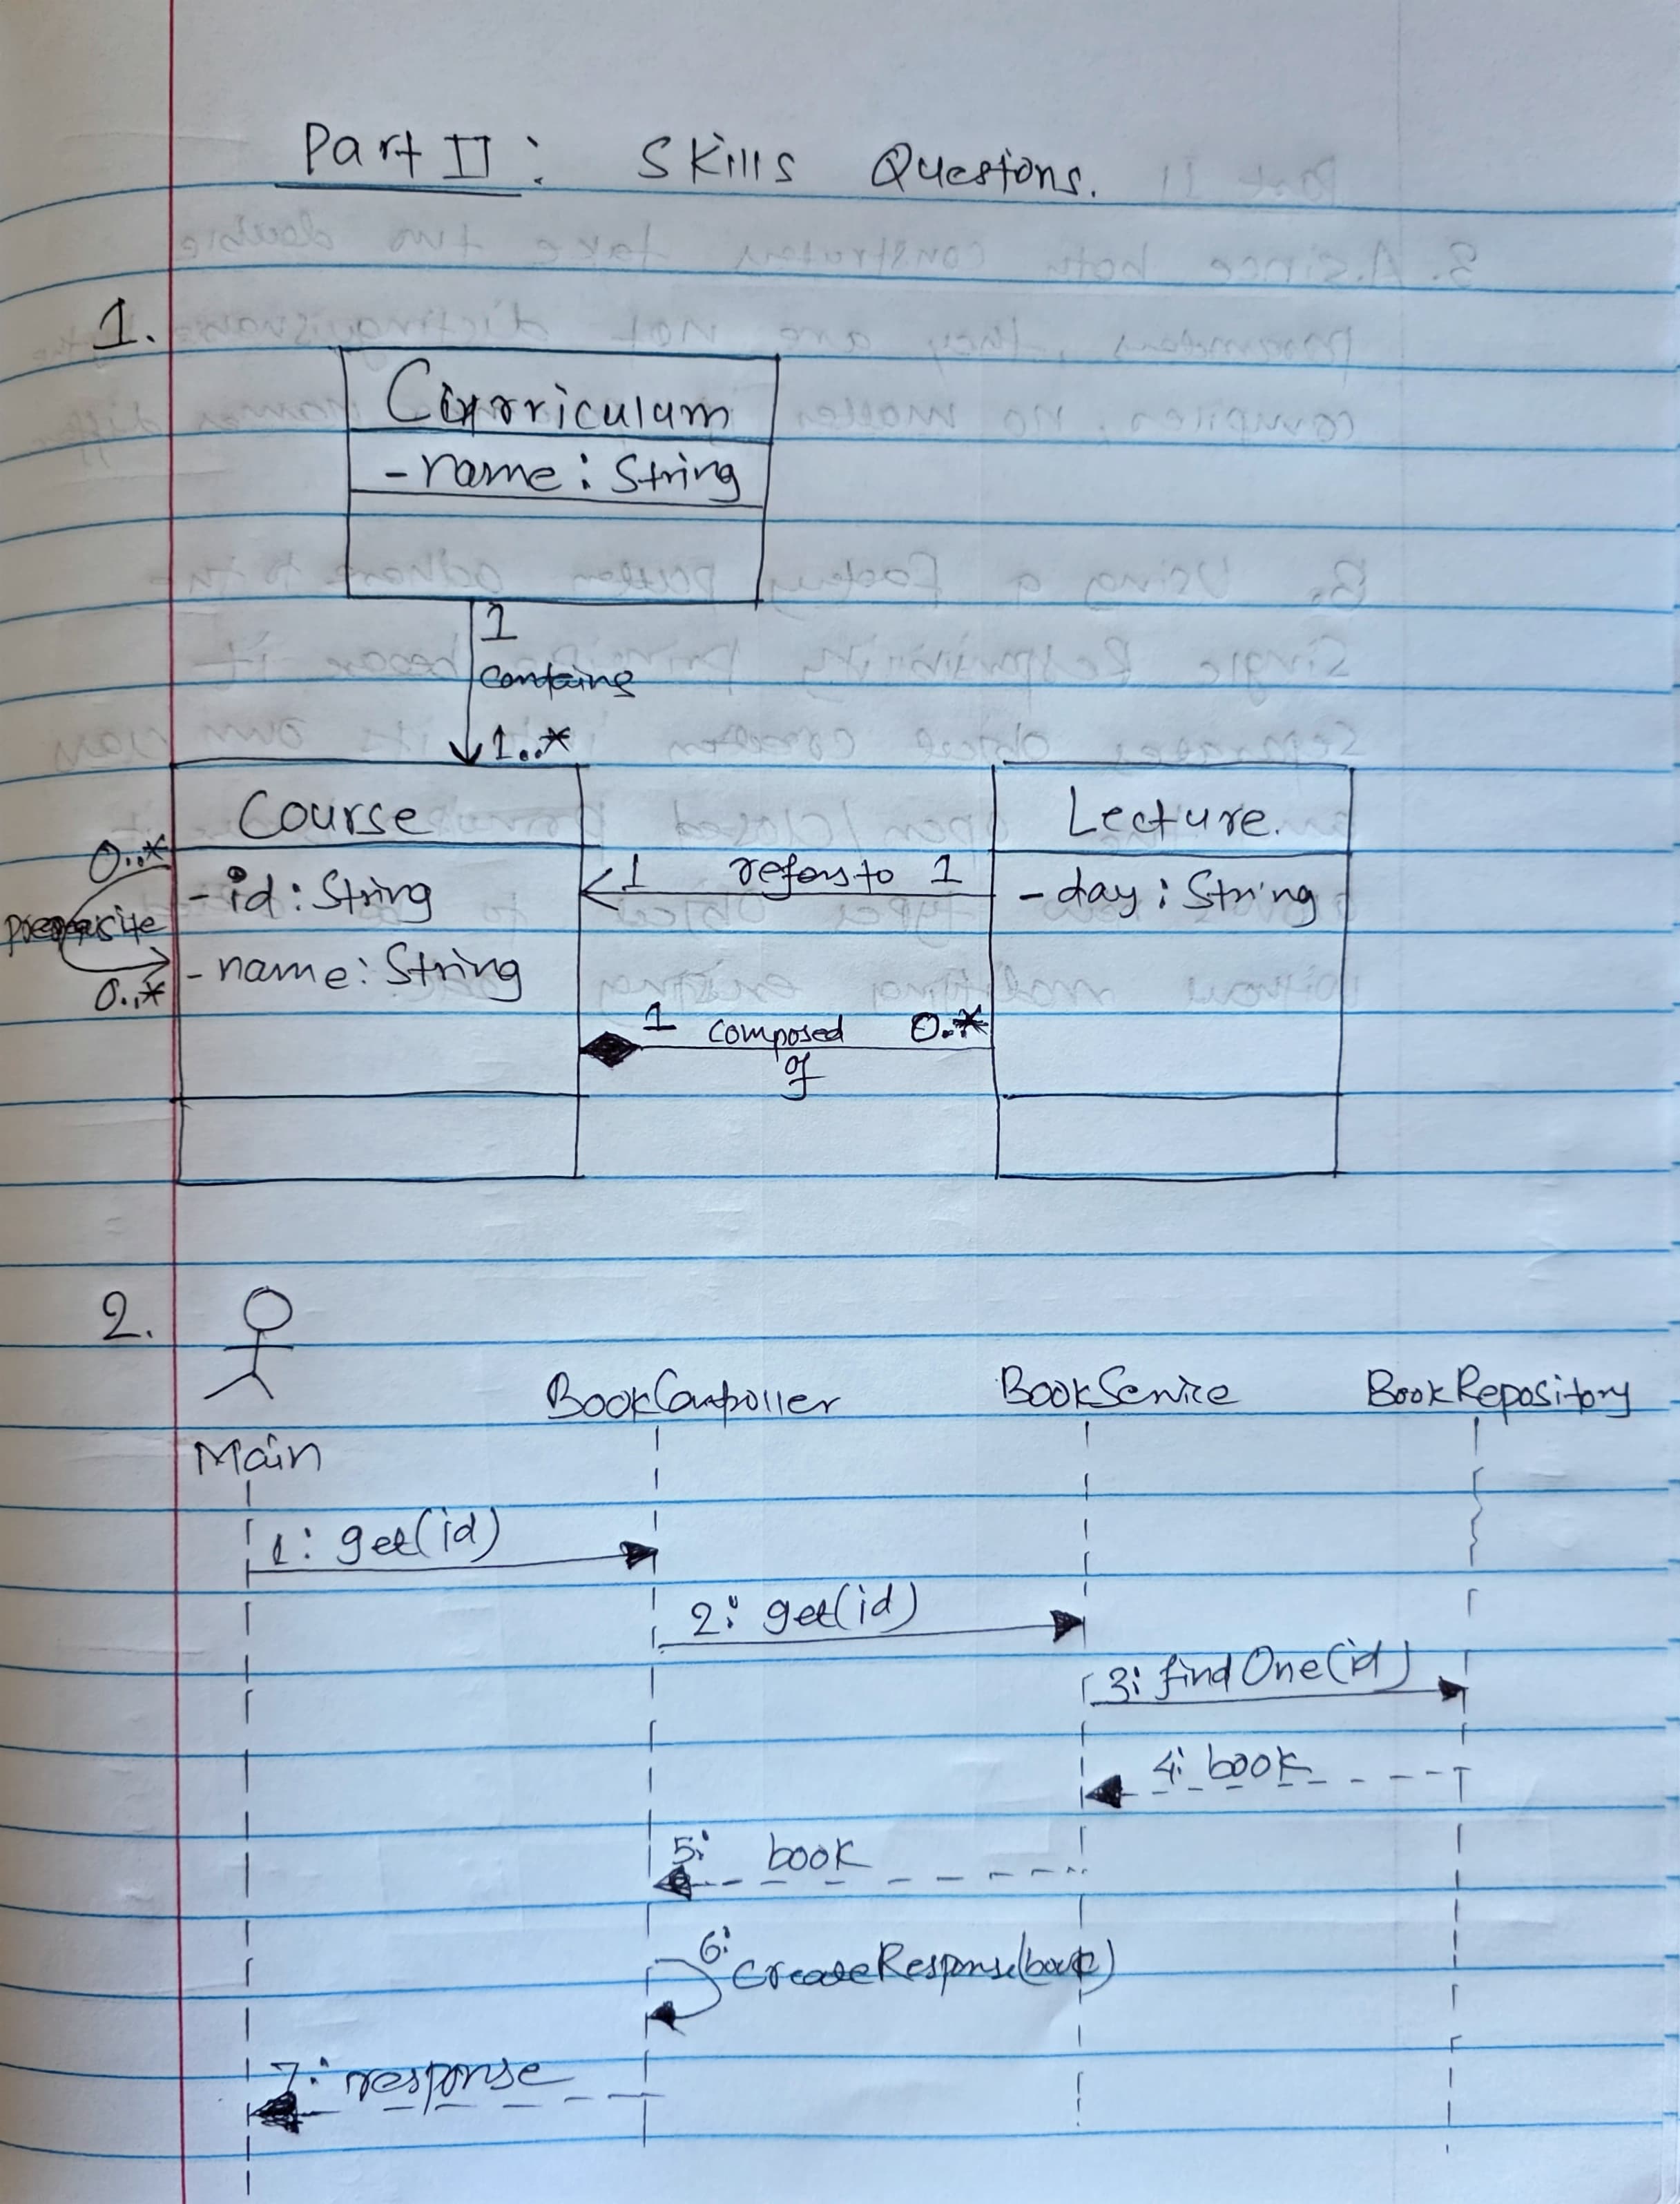 Part II: Skills Questions.
1.
Curriculum
-name: String
1
contains
1..*
Course
-id: String
-name: String
0..*
0..*
1 refers to 1
1 composed 0..*
of
Lecture.
-day: String
2.
Main
BookController BookService BookRepository
1: get(id)
2: get(id)
3: findOne(id)
4: book
5: book
6:
createResponse(book)
7: response